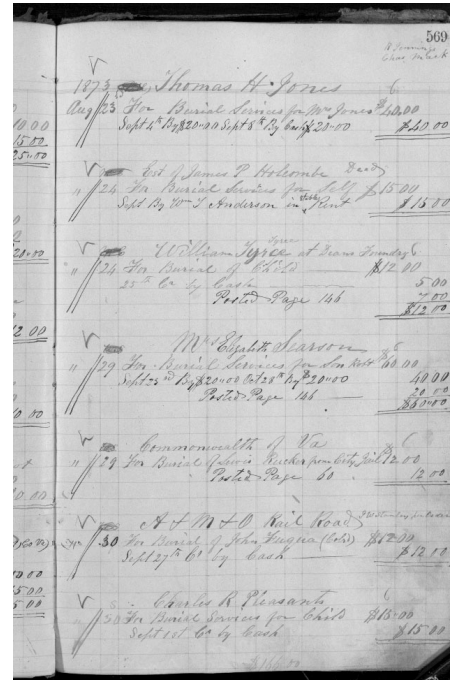 569
1873 Thomas H. Jones 6
Aug 23 For Burial Services for Mrs Jones $40.00
Sept 4th By $20.00 Sept 8th By Cash $20.00 $40.00
Est of James P Holcombe Decd
" 24 For Burial Services for Self $15.00
Sept By Wm T Anderson in Rent $15.00
Tyree
William Tyree at Deans Foundry 6
" 24 For Burial of Child $12.00
25th Cr by Cash 5.00
Posted Page 146 7.00
$12.00
Mrs Elizabeth Searson 6
" 29 For Burial Services for Son Robt $60.00
Sept 23rd By $20.00 Oct 28th By $20.00 40.00
Posted Page 146 20.00
$60.00
Commonwealth of Va 6
" 29 For Burial of Lewis Rucker from City Jail $12.00
Posted Page 60 12.00
A & M & O Rail Road
" 30 For Burial of John Fuqua (Cold) $12.00
Sept 27th Cr by Cash $12.00
Charles R Pleasants
" 30 For Burial Services for Child $15.00
Sept 1st Cr by Cash $15.00
10.00
15.00
25.00
20.00
12.00